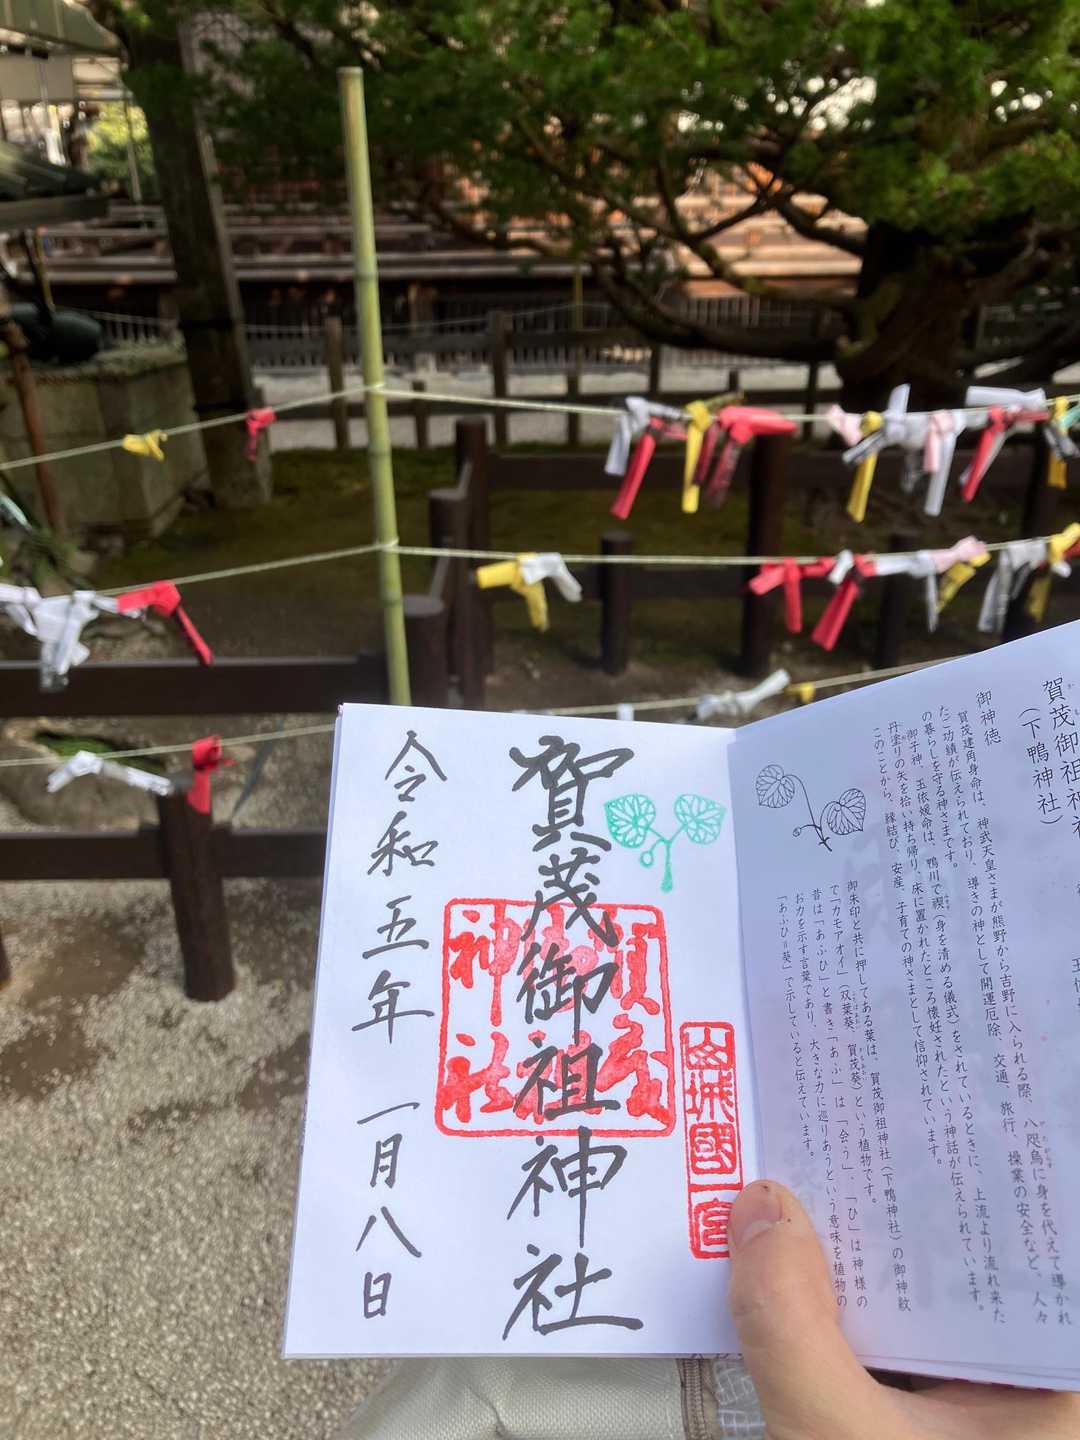 賀茂御祖神社
(下鴨神社)
御神徳
賀茂建角身命は、神武天皇さまが熊野から吉野に入られる際、八咫烏に身を代えて導かれ
たご功績が伝えられており、導きの神として開運厄除、交通、旅行、操業の安全など、人々
の暮らしを守る神さまです。
御子神、玉依媛命は、鴨川で禊(身を清める儀式)をされているときに、上流より流れ来た
丹塗りの矢を拾い持ち帰り、床に置かれたところ懐妊されたという神話が伝えられています。
このことから、縁結び、安産、子育ての神さまとして信仰されています。
御朱印と共に押してある葉は、賀茂御祖神社(下鴨神社)の御神紋
で「カモアオイ」(双葉葵、賀茂葵)という植物です。
昔は「あふひ」と書き「あふ」は「会う」、「ひ」は神様の
お力を示す言葉であり、大きな力に巡りあうという意味を植物の
「あふひ=葵」で示していると伝えています。
山城國一宮
賀茂御祖神社
賀茂御祖神社
令和五年 一月八日